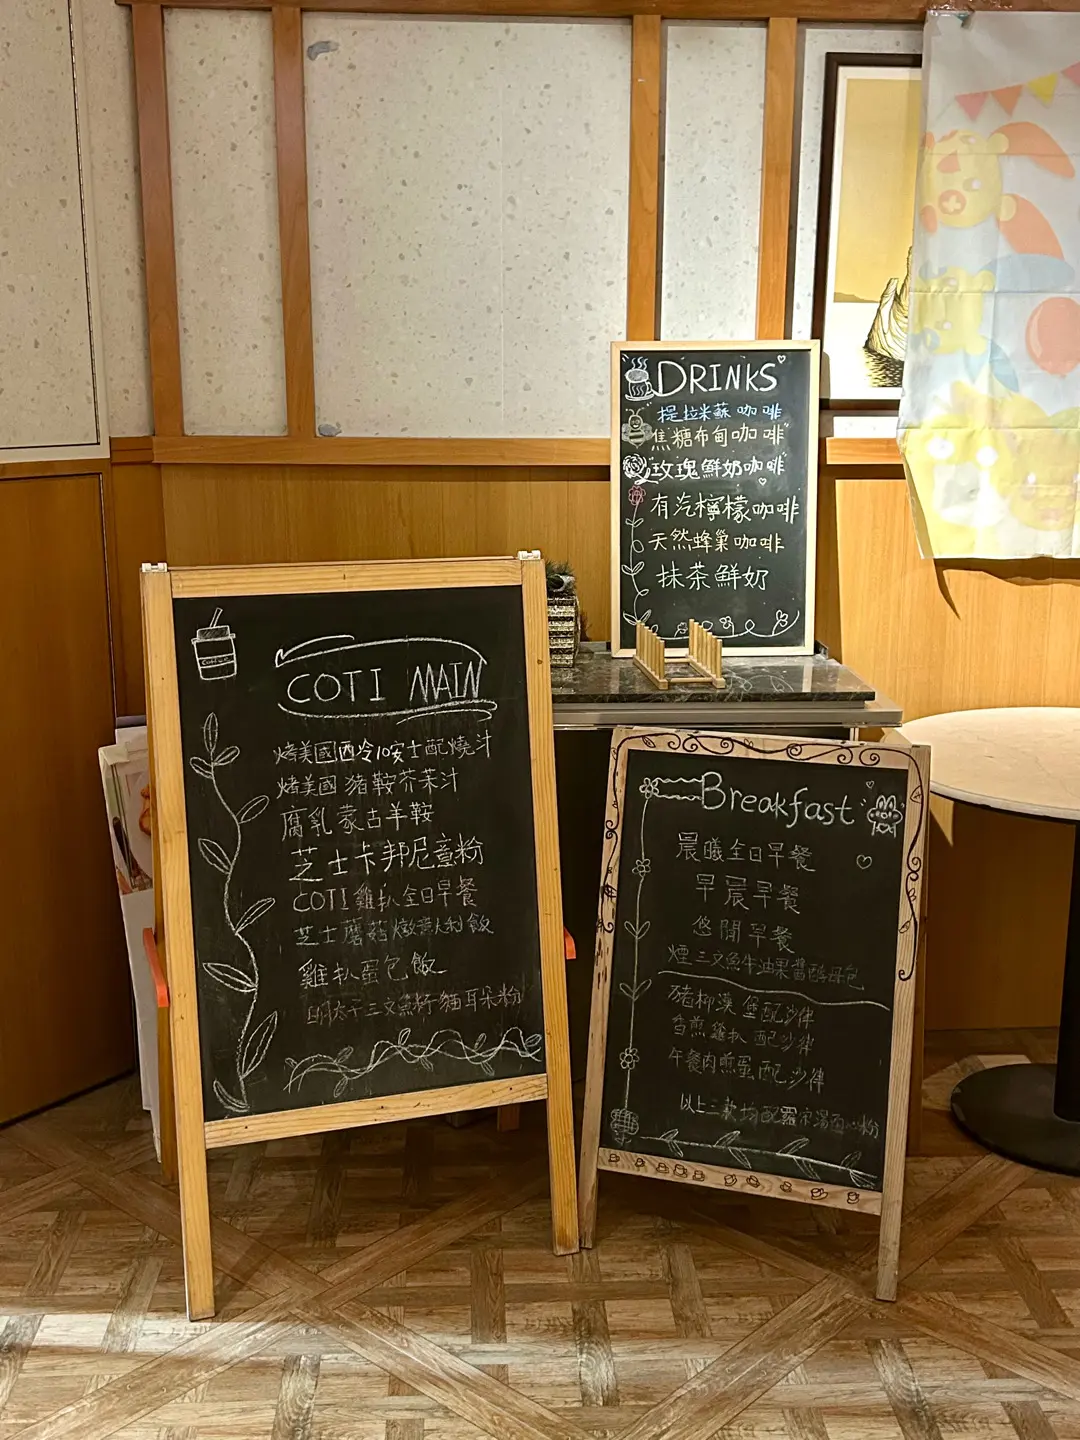 COTI MAIN
烤美國西冷10安士配燒汁
烤美國豬鞍芥茉汁
腐乳蒙古羊鞍
芝士卡邦尼意粉
COTI雞扒全日早餐
芝士蘑菇燉意大利飯
雞扒蛋包飯
明太子三文魚籽貓耳朵粉
DRINKS
提拉米蘇咖啡
焦糖布甸咖啡
玫瑰鮮奶咖啡
有汽檸檬咖啡
天然蜂巢咖啡
抹茶鮮奶
Breakfast
晨曦全日早餐
早晨早餐
悠閒早餐
煙三文魚牛油果醬酵母包
豬柳漢堡配沙律
香煎雞扒配沙律
午餐肉煎蛋配沙律
以上三款均配羅宋湯通心粉